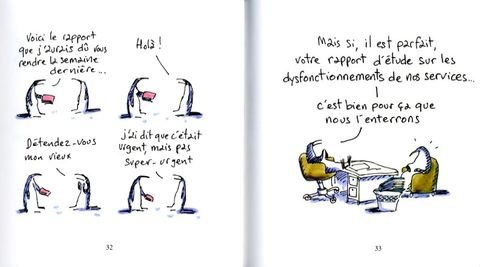 Voici le rapport
que j'aurais dû vous
rendre la semaine
dernière...
Holà !
Détendez-vous
mon vieux
j'ai dit que c'était
urgent, mais pas
super-urgent
32
Mais si, il est parfait,
votre rapport d'étude sur les
dysfonctionnements de nos services...
c'est bien pour ça que
nous l'enterrons
33